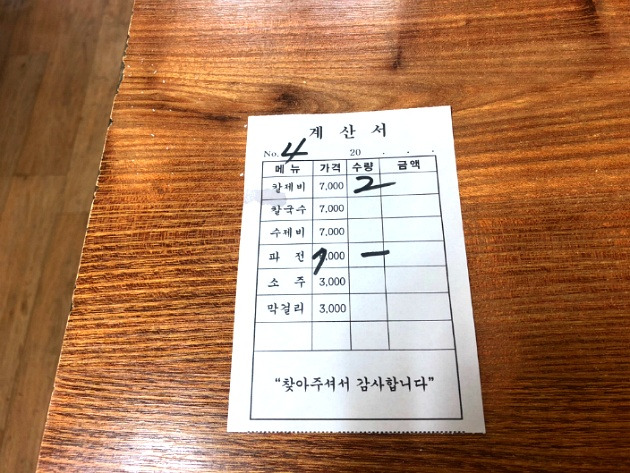 계 산 서
No. 4 20 . . .
메 뉴 가격 수량 금 액
칼제비 7,000 2
칼국수 7,000
수제비 7,000
파 전 7,000 ー
소 주 3,000
막걸리 3,000
"찾아주셔서 감사합니다"